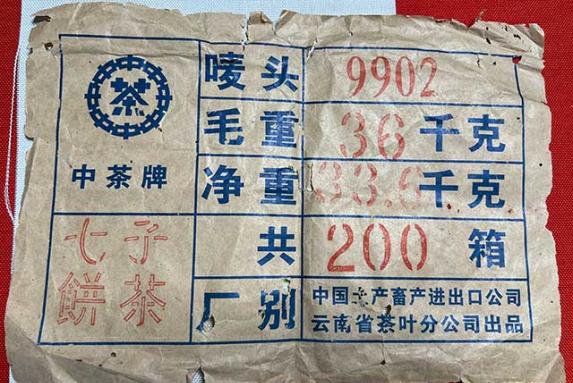 茶
中茶牌
七子
餅茶
唛头 9902
毛重 36 千克
净重 33.6 千克
共 200 箱
厂别 中国土产畜产进出口公司
云南省茶叶分公司出品